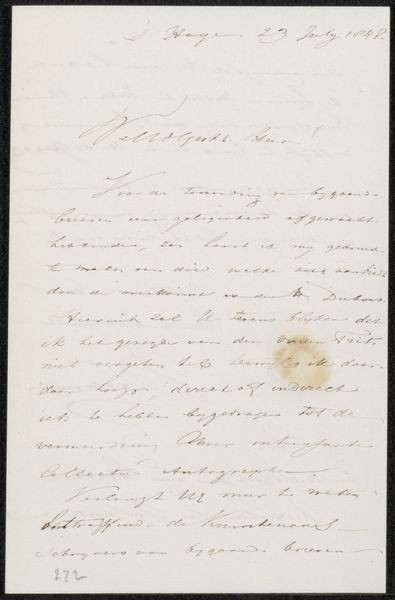 's Hage 23 July 1848.
Wel Ed Gestr. Heer!
Voor de toezending van bygaande
brieven eene gelegenheid afgewacht
hebbende, zoo haast ik my gebruik
te maken van die welke zich aanbiedt
door de overkomst van de Hr Dubois.
Hieruit zal U tevens blyken dat
ik het gezegde van den vader Frits
niet vergeten heb terwyl ik daar
door hoop direct of indirect
iets te hebben bygedragen tot de
vermeerdering Uwer interessante
Collectie Autographen.
Verlangt UE meer te weten
betreffende de Kunstenaars
Schryvers van bygaande brieven
272